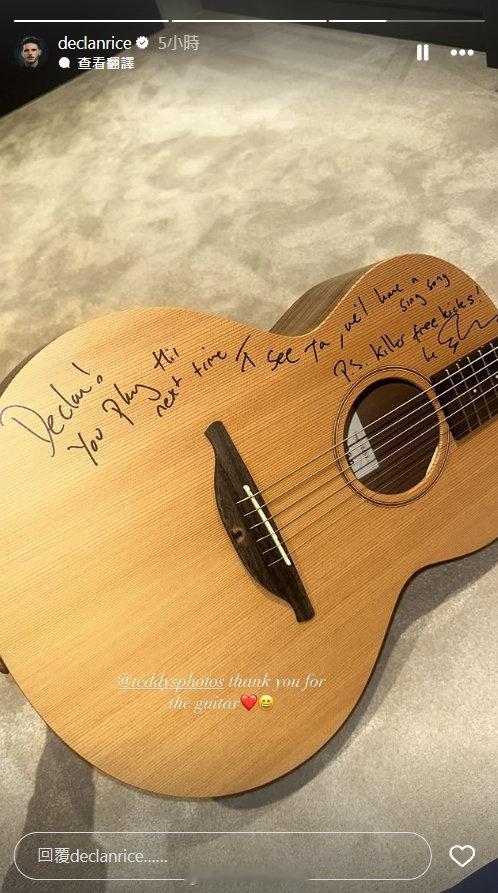 declanrice 5小時
查看翻譯
Declan!
You play this
next time I see ya, we'll have a
sing song
P.S. killer free kicks!
@teddysphotos thank you for
the guitar❤️😄
回覆declanrice......